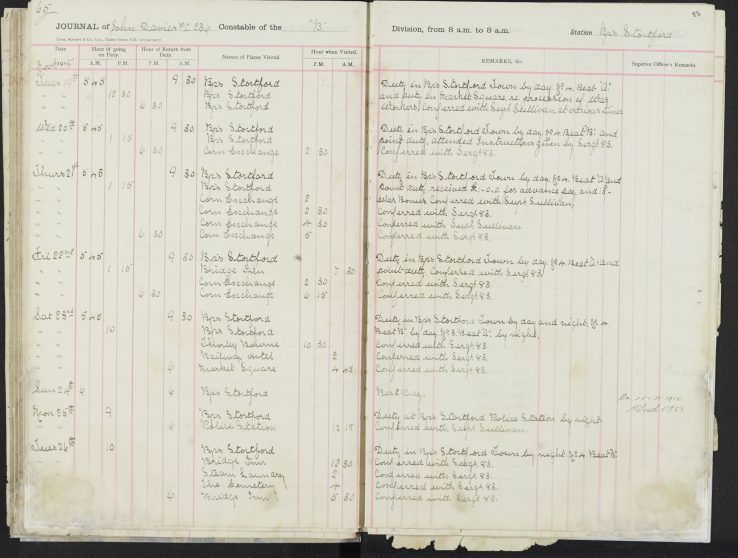 65
93
JOURNAL of John Davies P.C. 236 Constable of the "B" Division, from 8 a.m. to 8 a.m. Station Bps Stortford
Date Hour of going on Duty. Hour of Return from Duty. Names of Places Visited. Hour when Visited. REMARKS, &c. Superior Officer's Remarks.
A.M. P.M. A.M. P.M. P.M. A.M.
Tues 19th 5 45 9 30 Bps Stortford Duty in Bps Stortford Town by day No 4 Beat "A"
" " 12 30 Bps Stortford and duty in Market Square re procession of War
" " 6 30 Bps Stortford Workers, Conferred with Supt Sullivan at various times
Wed 20th 5 45 9 30 Bps Stortford Duty in Bps Stortford Town by day No 4 Beat "B" and
" " 1 15 Bps Stortford point duty, attended Instructions given by Sergt 83.
" " 6 30 Corn Exchange 2 30 Conferred with Sergt 83.
Thurs 21st 5 45 9 30 Bps Stortford Duty in Bps Stortford Town by day No 4 Beat "A" and
" " 1 15 Bps Stortford point duty received for advance pay and
Corn Exchange 2 War Bonds Conferred with Supt Sullivan,
Corn Exchange 2 30 Conferred with Sergt 83.
Corn Exchange 4 30 Conferred with Supt Sullivan
" " 6 30 Corn Exchange 5 Conferred with Sergt 83.
Fri 22nd 5 45 9 30 Bps Stortford Duty in Bps Stortford Town by day No 4 Beat "A" and
" " 1 15 Bridge Inn 7 30 point duty Conferred with Sergt 83.
Corn Exchange 2 30 Conferred with Sergt 83.
" " 6 30 Corn Exchange 6 15 Conferred with Sergt 83.
Sat 23rd 5 45 9 30 Bps Stortford Duty in Bps Stortford Town by day and night, No 4
" " 10 Bps Stortford Beat "B" by day, No 3 Beat "A" by night,
Thorley Bourne 10 30 Conferred with Sergt 83.
Railway Hotel 2 Conferred with Sergt 83.
" " 6 Market Square 4 45 Conferred with Sergt 83.
Sun 24th 6 6 Bps Stortford Rest Day.
Mon 25th 9 Bps Stortford Duty at Bps Stortford Police Station by night
" " 6 Police Station 12 15 Conferred with Supt Sullivan.
Tues 26th 10 Bps Stortford Duty in Bps Stortford Town by night No 4 Beat "B"
Bridge Inn 12 30 Conferred with Sergt 83.
Steam Laundry 2 Conferred with Sergt 83.
The Cemetery 4 Conferred with Sergt 83.
" " 6 Bridge Inn 5 30 Conferred with Sergt 83.